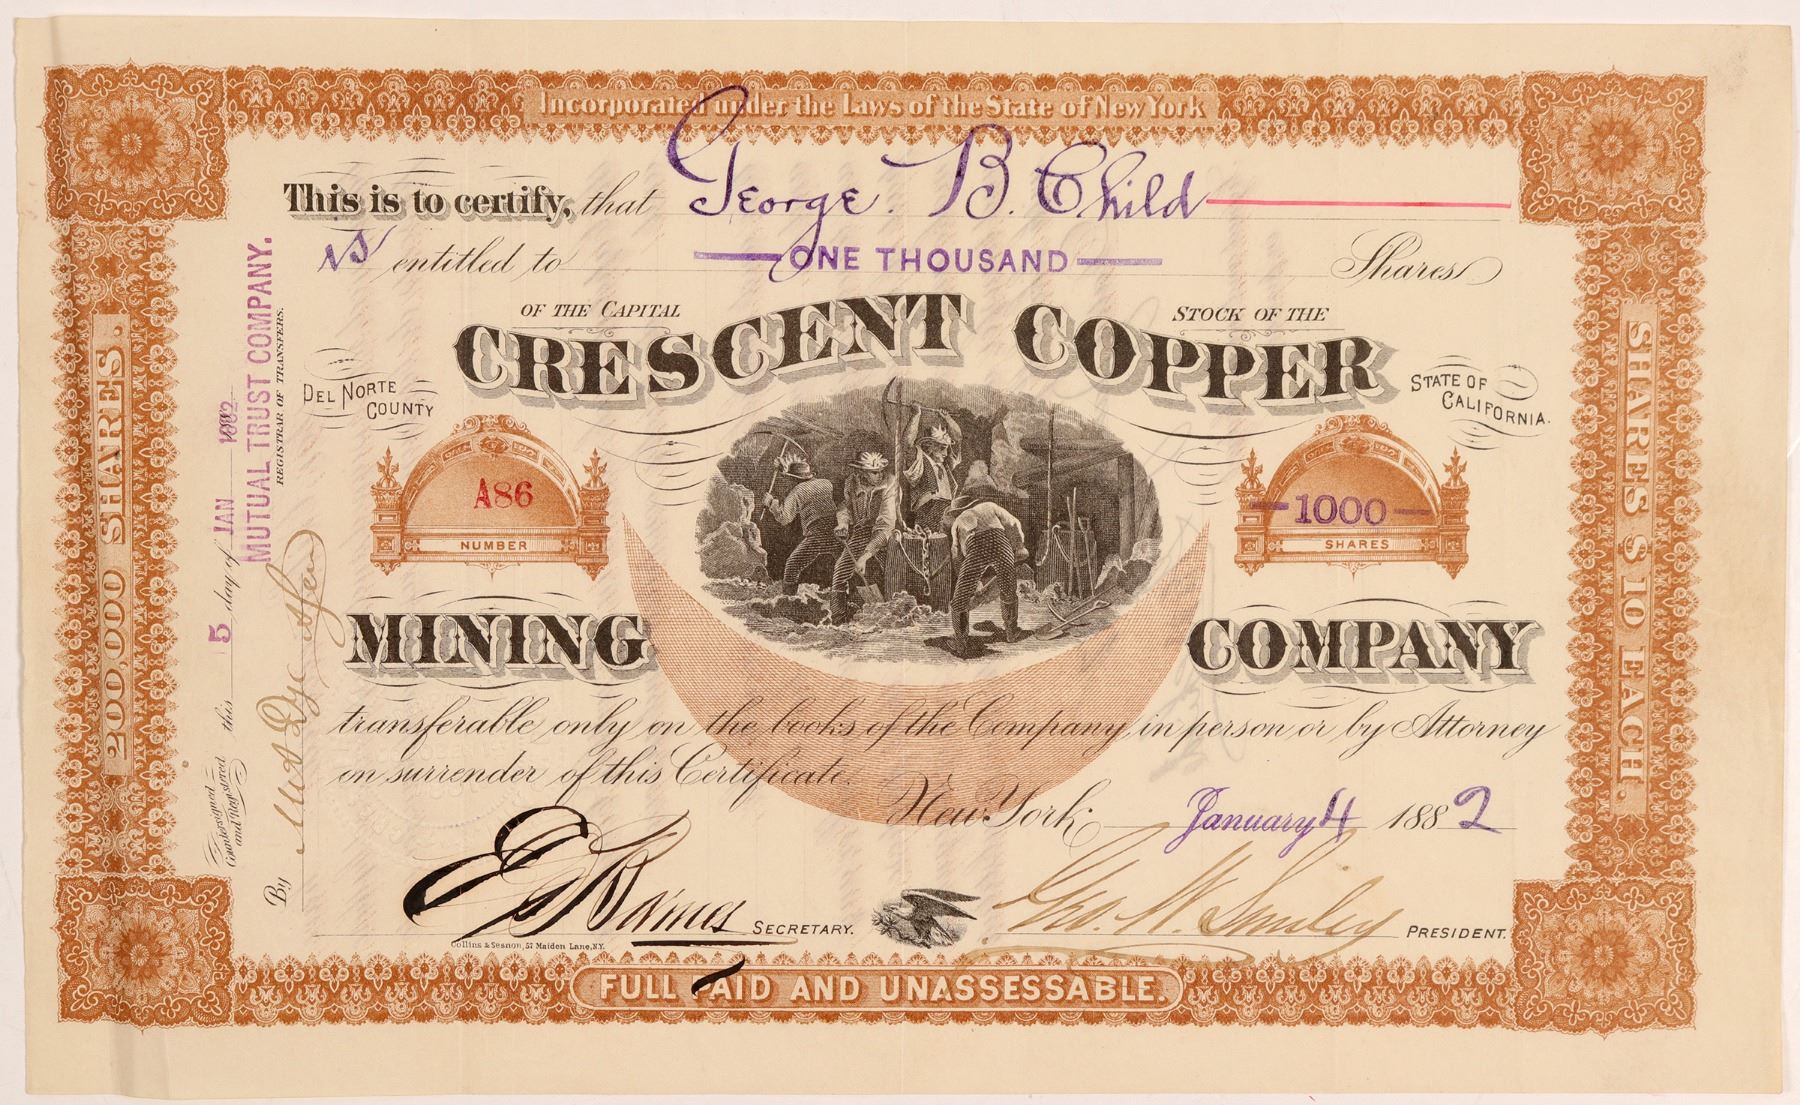 Incorporated under the Laws of the State of New York
This is to certify, that George. B. Child
is entitled to ONE THOUSAND Shares
OF THE CAPITAL STOCK OF THE
CRESCENT COPPER
DEL NORTE COUNTY
STATE OF CALIFORNIA.
A86
NUMBER
1000
SHARES
MINING COMPANY
transferable only on the books of the Company, in person or by Attorney
on surrender of this Certificate.
New York January 4 1882
SECRETARY.
Geo. W. Smiley PRESIDENT.
Collins & Sesnon, 57 Maiden Lane, N.Y.
FULL PAID AND UNASSESSABLE.
200,000 SHARES.
SHARES $10 EACH.
Countersigned and Registered this 5 day of JAN 1882
MUTUAL TRUST COMPANY.
REGISTRAR OF TRANSFERS.
By